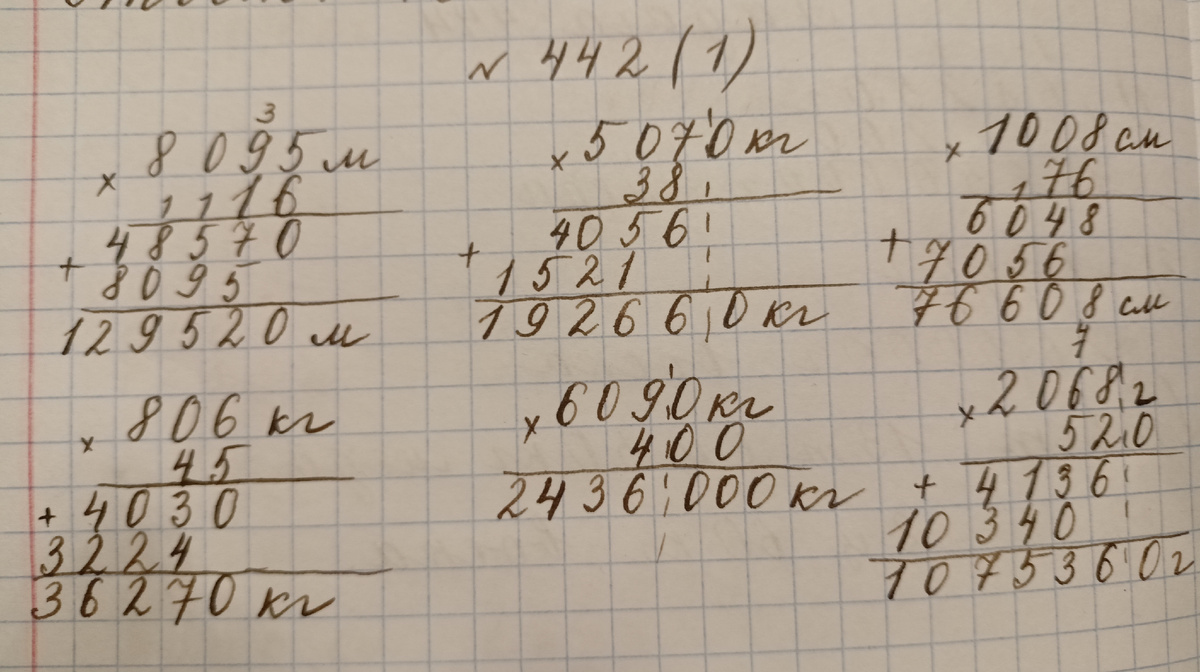 № 442 (1)
3
× 8095 м
1116
+ 48570
8095
129520 м
× 5070 кг
38
+ 4056
1521
192660 кг
× 1008 см
,76
+ 6048
7056
76608 см
× 806 кг
45
+ 4030
3224
36270 кг
× 6090 кг
400
2436000 кг
7
× 2068 г
520
+ 4136
10340
1075360 г